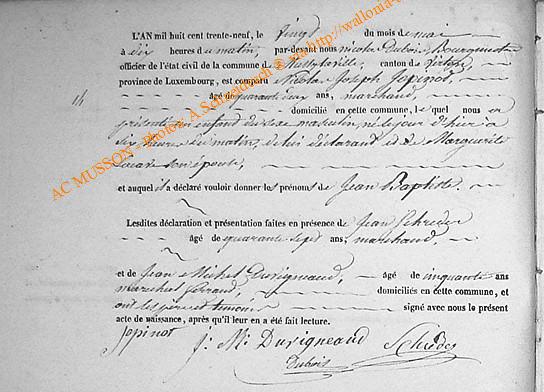 L'AN mil huit cent trente-neuf, le vingt du mois de mai
à dix heures du matin, par-devant nous Nicolas Dubois, Bourgmestre
officier de l'état civil de la commune de canton de Virton,
province de Luxembourg, est comparu Nicolas Joseph Jopinot,
14 âgé de quarante deux ans, marchand,
domicilié en cette commune, lequel nous a
présenté un enfant du sexe masculin, né le jour d'hier à
dix heures du matin, de lui déclarant et de Marguerite
son épouse,
et auquel il a déclaré vouloir donner les prénoms de Jean Baptiste.
Lesdites déclaration et présentation faites en présence de Jean Schreder
âgé de quarante sept ans, marchand,
et de Jean Michel Duvigneaud, âgé de cinquante ans
maréchal ferrand, domiciliés en cette commune, et
ont les père et témoins signé avec nous le présent
acte de naissance, après qu'il leur en a été fait lecture.
Jopinot J: M: Duvigneaud Schreder
Dubois
AC MUSSON - Photos A. Schmidtbach @ via http://wallonia-